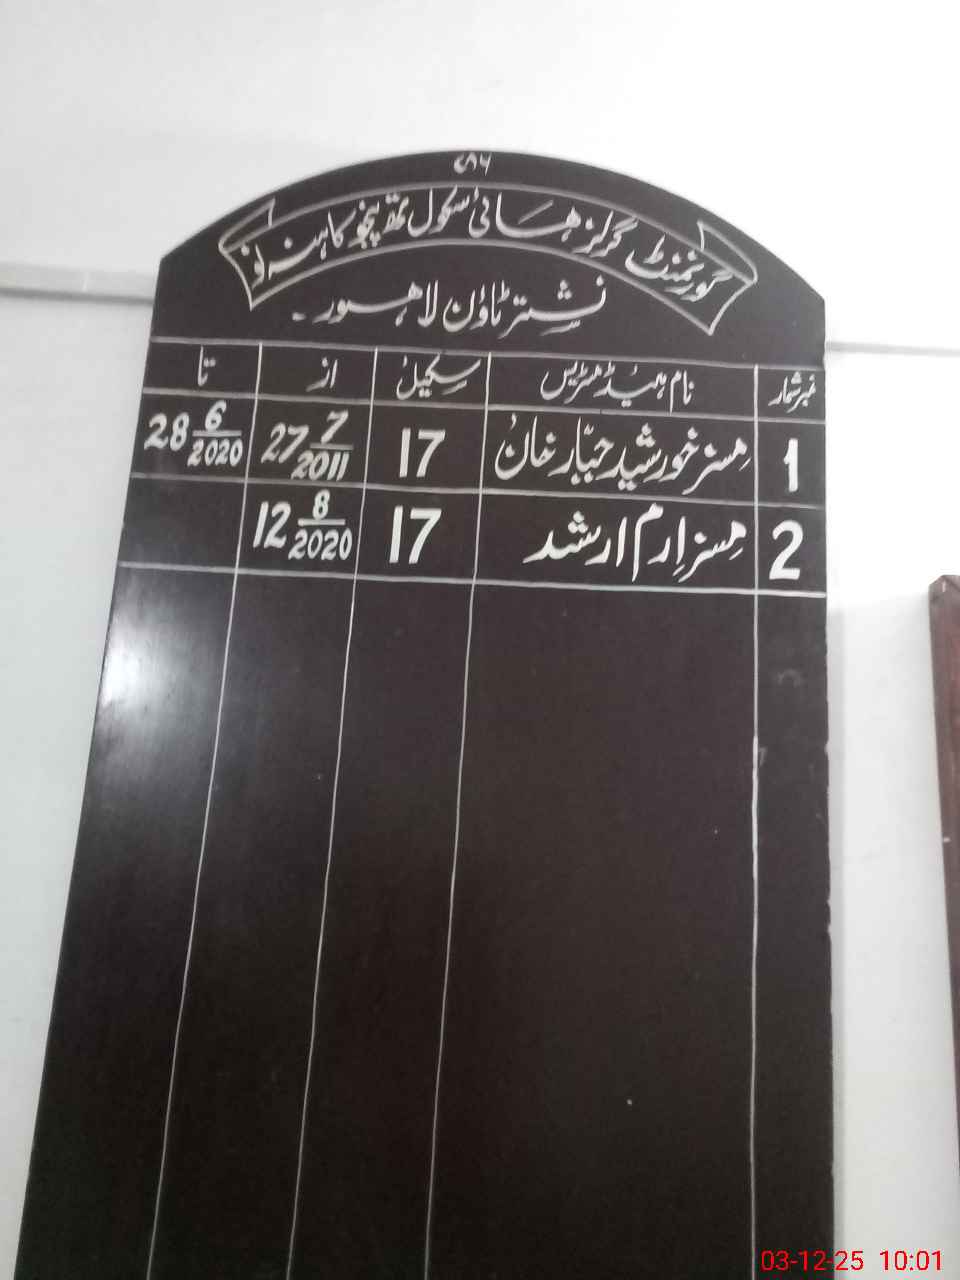 ۷۸۶
گورنمنٹ گرلز ہائی سکول تھہ پنجو کاہنہ نو
نشتر ٹاؤن لاہور۔
نمبر شمار نام ہیڈ مسٹریس سکیل از تا
1 مسز خورشید جبّار خان 17 27 7/2011 28 6/2020
2 مسز اِرم ارشد 17 12 8/2020
03-12-25 10:01